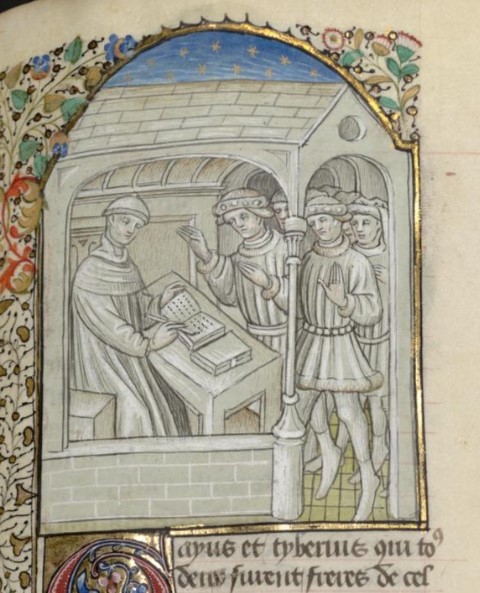 ayus et tyberius qui toꝰ
deux furent freres de cel